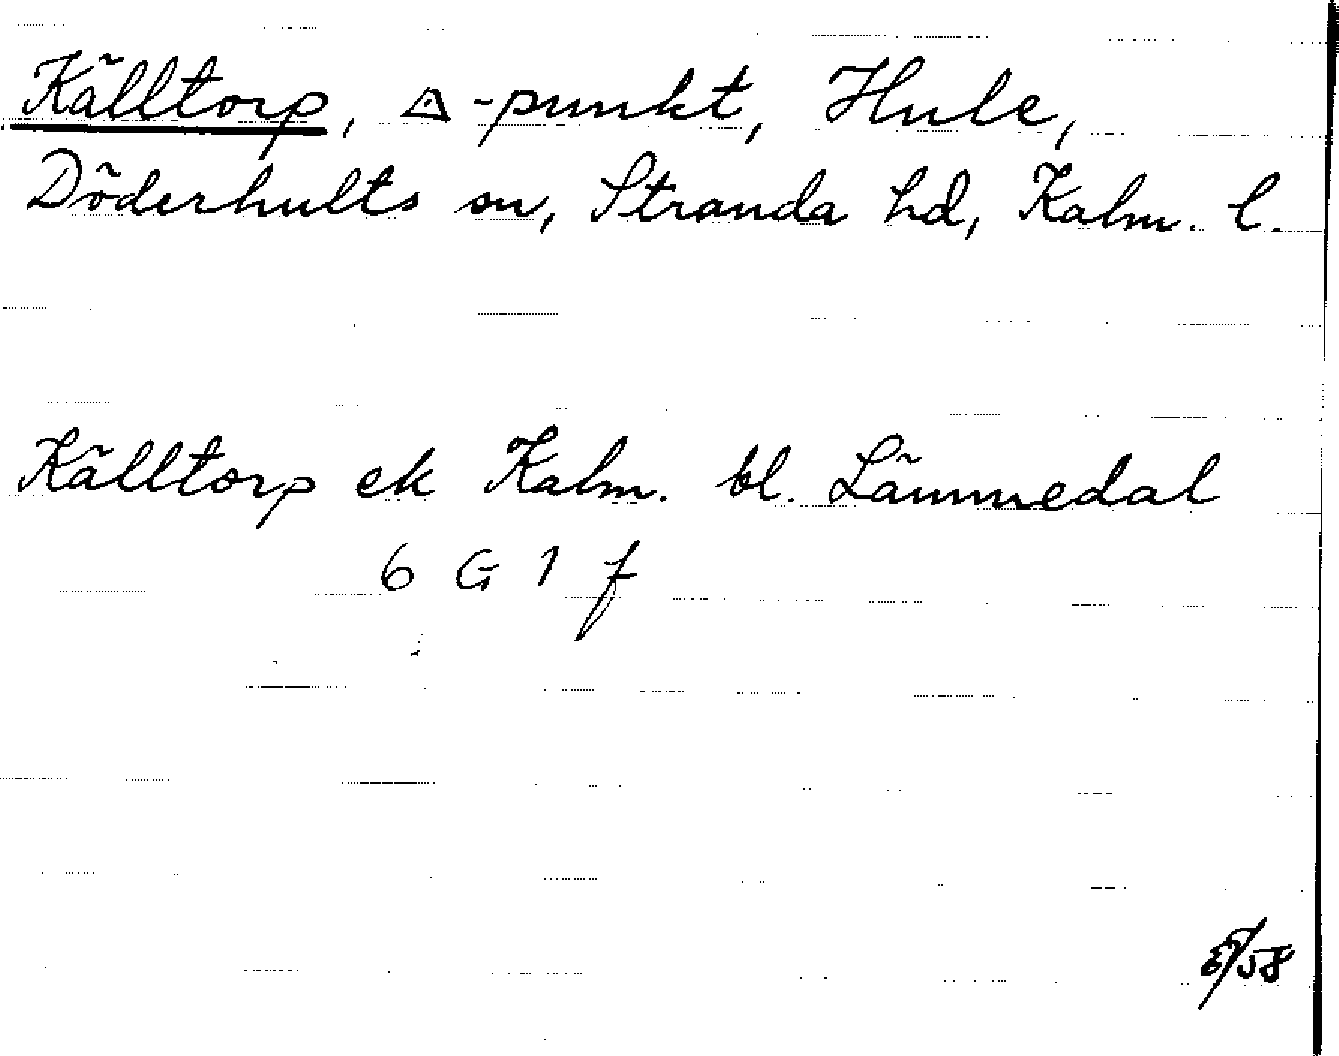 Källtorp, △-punkt, Hule,
Döderhults sn, Stranda hd, Kalm. l.
Källtorp ek Kalm. bl. Lämmedal
6 G 1 f